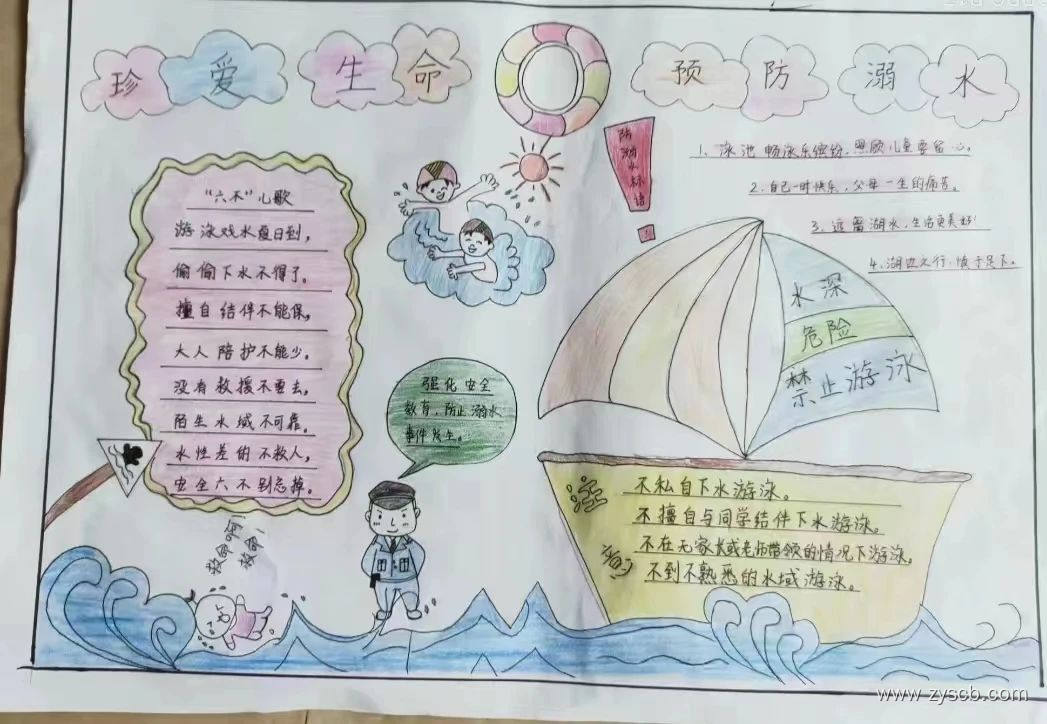 珍爱生命
预防溺水
防溺水标语!
1、泳池畅泳乐缤纷,照顾儿童要留心。
2、自己一时快乐,父母一生的痛苦。
3、远离湖水,生活更美好!
4、湖边之行,慎于足下。
“六不”儿歌
游泳戏水夏日到,
偷偷下水不得了。
擅自结伴不能保,
大人陪护不能少。
没有救援不要去,
陌生水域不可靠。
水性差的不救人,
安全六不别忘掉。
强化安全
教育,防止溺水
事件发生。
水深
危险
禁止游泳
注意
不私自下水游泳。
不擅自与同学结伴下水游泳。
不在无家长或老师带领的情况下游泳。
不到不熟悉的水域游泳。
救命啊
救命!
www.zyscb.com